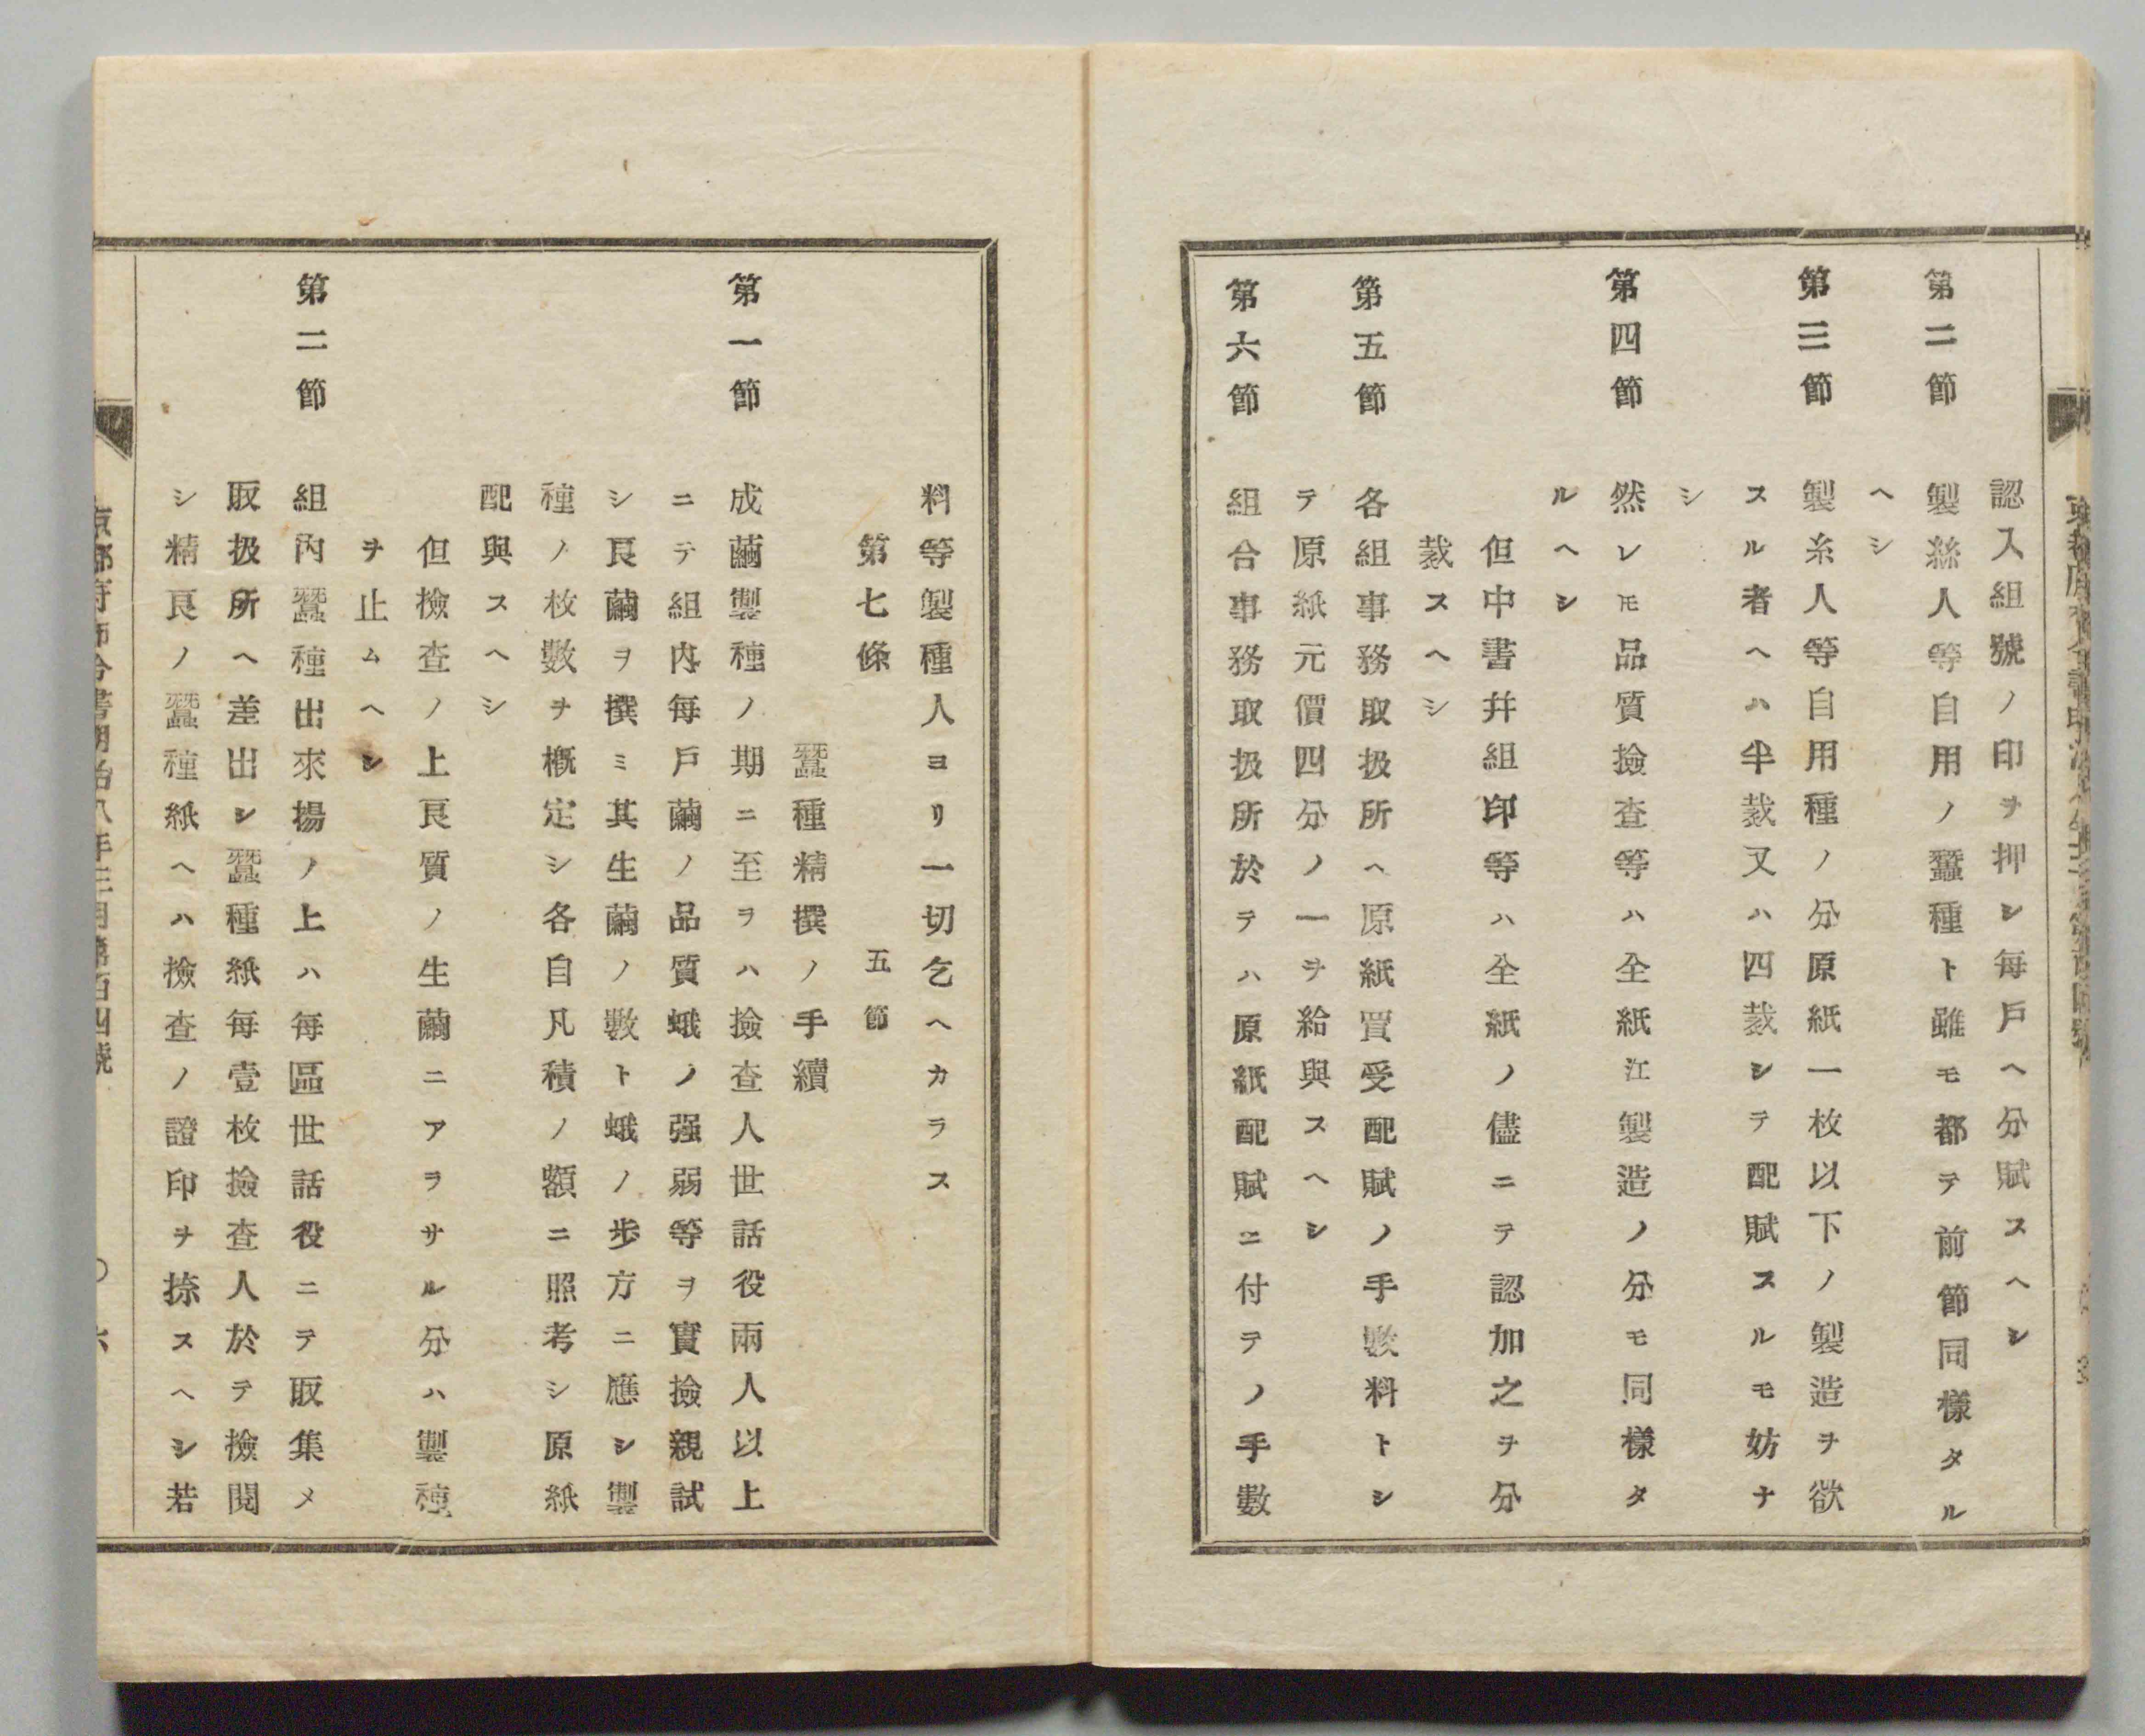 認入組號ノ印ヲ押シ每戶ヘ分賦スヘシ
第二節 製絲人等自用ノ蠶種ト雖モ都テ前節同樣タル
ヘシ
第三節 製糸人等自用種ノ分原紙一枚以下ノ製造ヲ欲
スル者ヘハ半裁又ハ四裁シテ配賦スルモ妨ナ
シ
第四節 然レ𪜈品質撿查等ハ全紙江製造ノ分モ同樣タ
ルヘシ
但中書幷組印等ハ全紙ノ儘ニテ認加之ヲ分
裁スヘシ
第五節 各組事務取扱所ヘ原紙買受配賦ノ手數料トシ
テ原紙元價四分ノ一ヲ給與スヘシ
第六節 組合事務取扱所於テハ原紙配賦ニ付テノ手數
料等製種人ヨリ一切乞ヘカラス
第七條 五節
蠶種精撰ノ手續
第一節 成繭製種ノ期ニ至ヲハ撿查人世話役兩人以上
ニテ組內每戶繭ノ品質蛾ノ强弱等ヲ實撿親試
シ良繭ヲ撰ミ其生繭ノ數ト蛾ノ步方ニ應シ製
種ノ枚數ヲ槪定シ各自凡積ノ額ニ照考シ原紙
配與スヘシ
但撿查ノ上良質ノ生繭ニアヲサル分ハ製種
ヲ止ムヘシ
第二節 組內蠶種出來揚ノ上ハ每區世話役ニテ取集メ
取扱所ヘ差出シ蠶種紙每壹枚撿查人於テ撿閱
シ精良ノ蠶種紙ヘハ撿查ノ證印ヲ捺スヘシ若